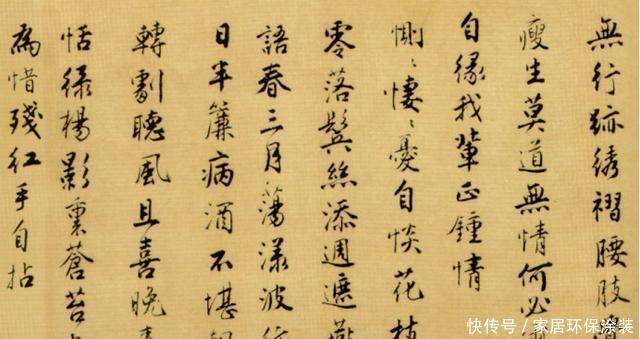 無行跡綉褶腰肢
瘦生莫道無情何必
自緣我輩正鍾情
惻〻悽〻憂自惔花枝
零落鬢絲添週遮燕
語春三月蕩漾波
日半簾病酒不堪
轉劇聽風且喜晚
恬綠楊影裏蒼苔
為惜殘紅手自拈
快传号／家居环保涂装